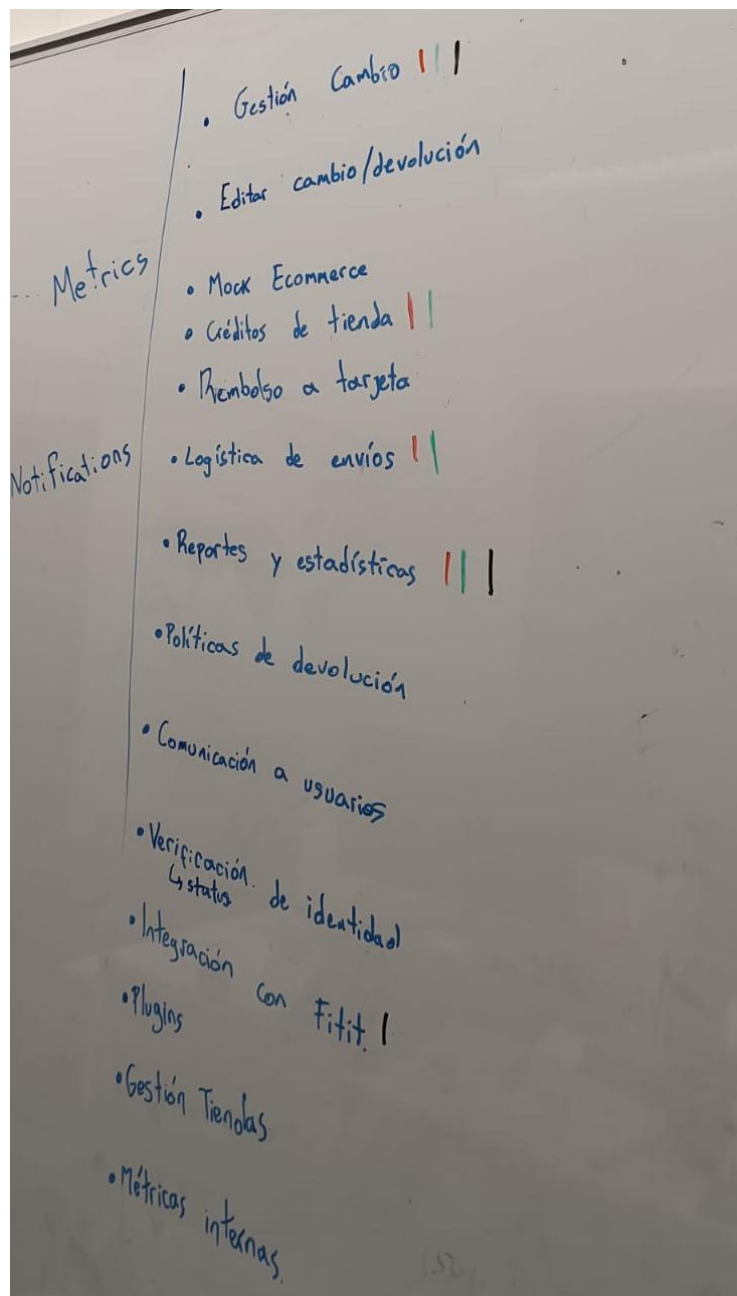 • Gestión Cambio
• Editar cambio/devolución
... Metrics
• Mock Ecommerce
• Créditos de tienda
• Rembolso a tarjeta
Notifications
• Logística de envíos
• Reportes y estadísticas
• Políticas de devolución
• Comunicación a usuarios
• Verificación de identidad
↳ status
• Integración con Fitit.
• Plugins
• Gestión Tiendas
• Métricas internas.